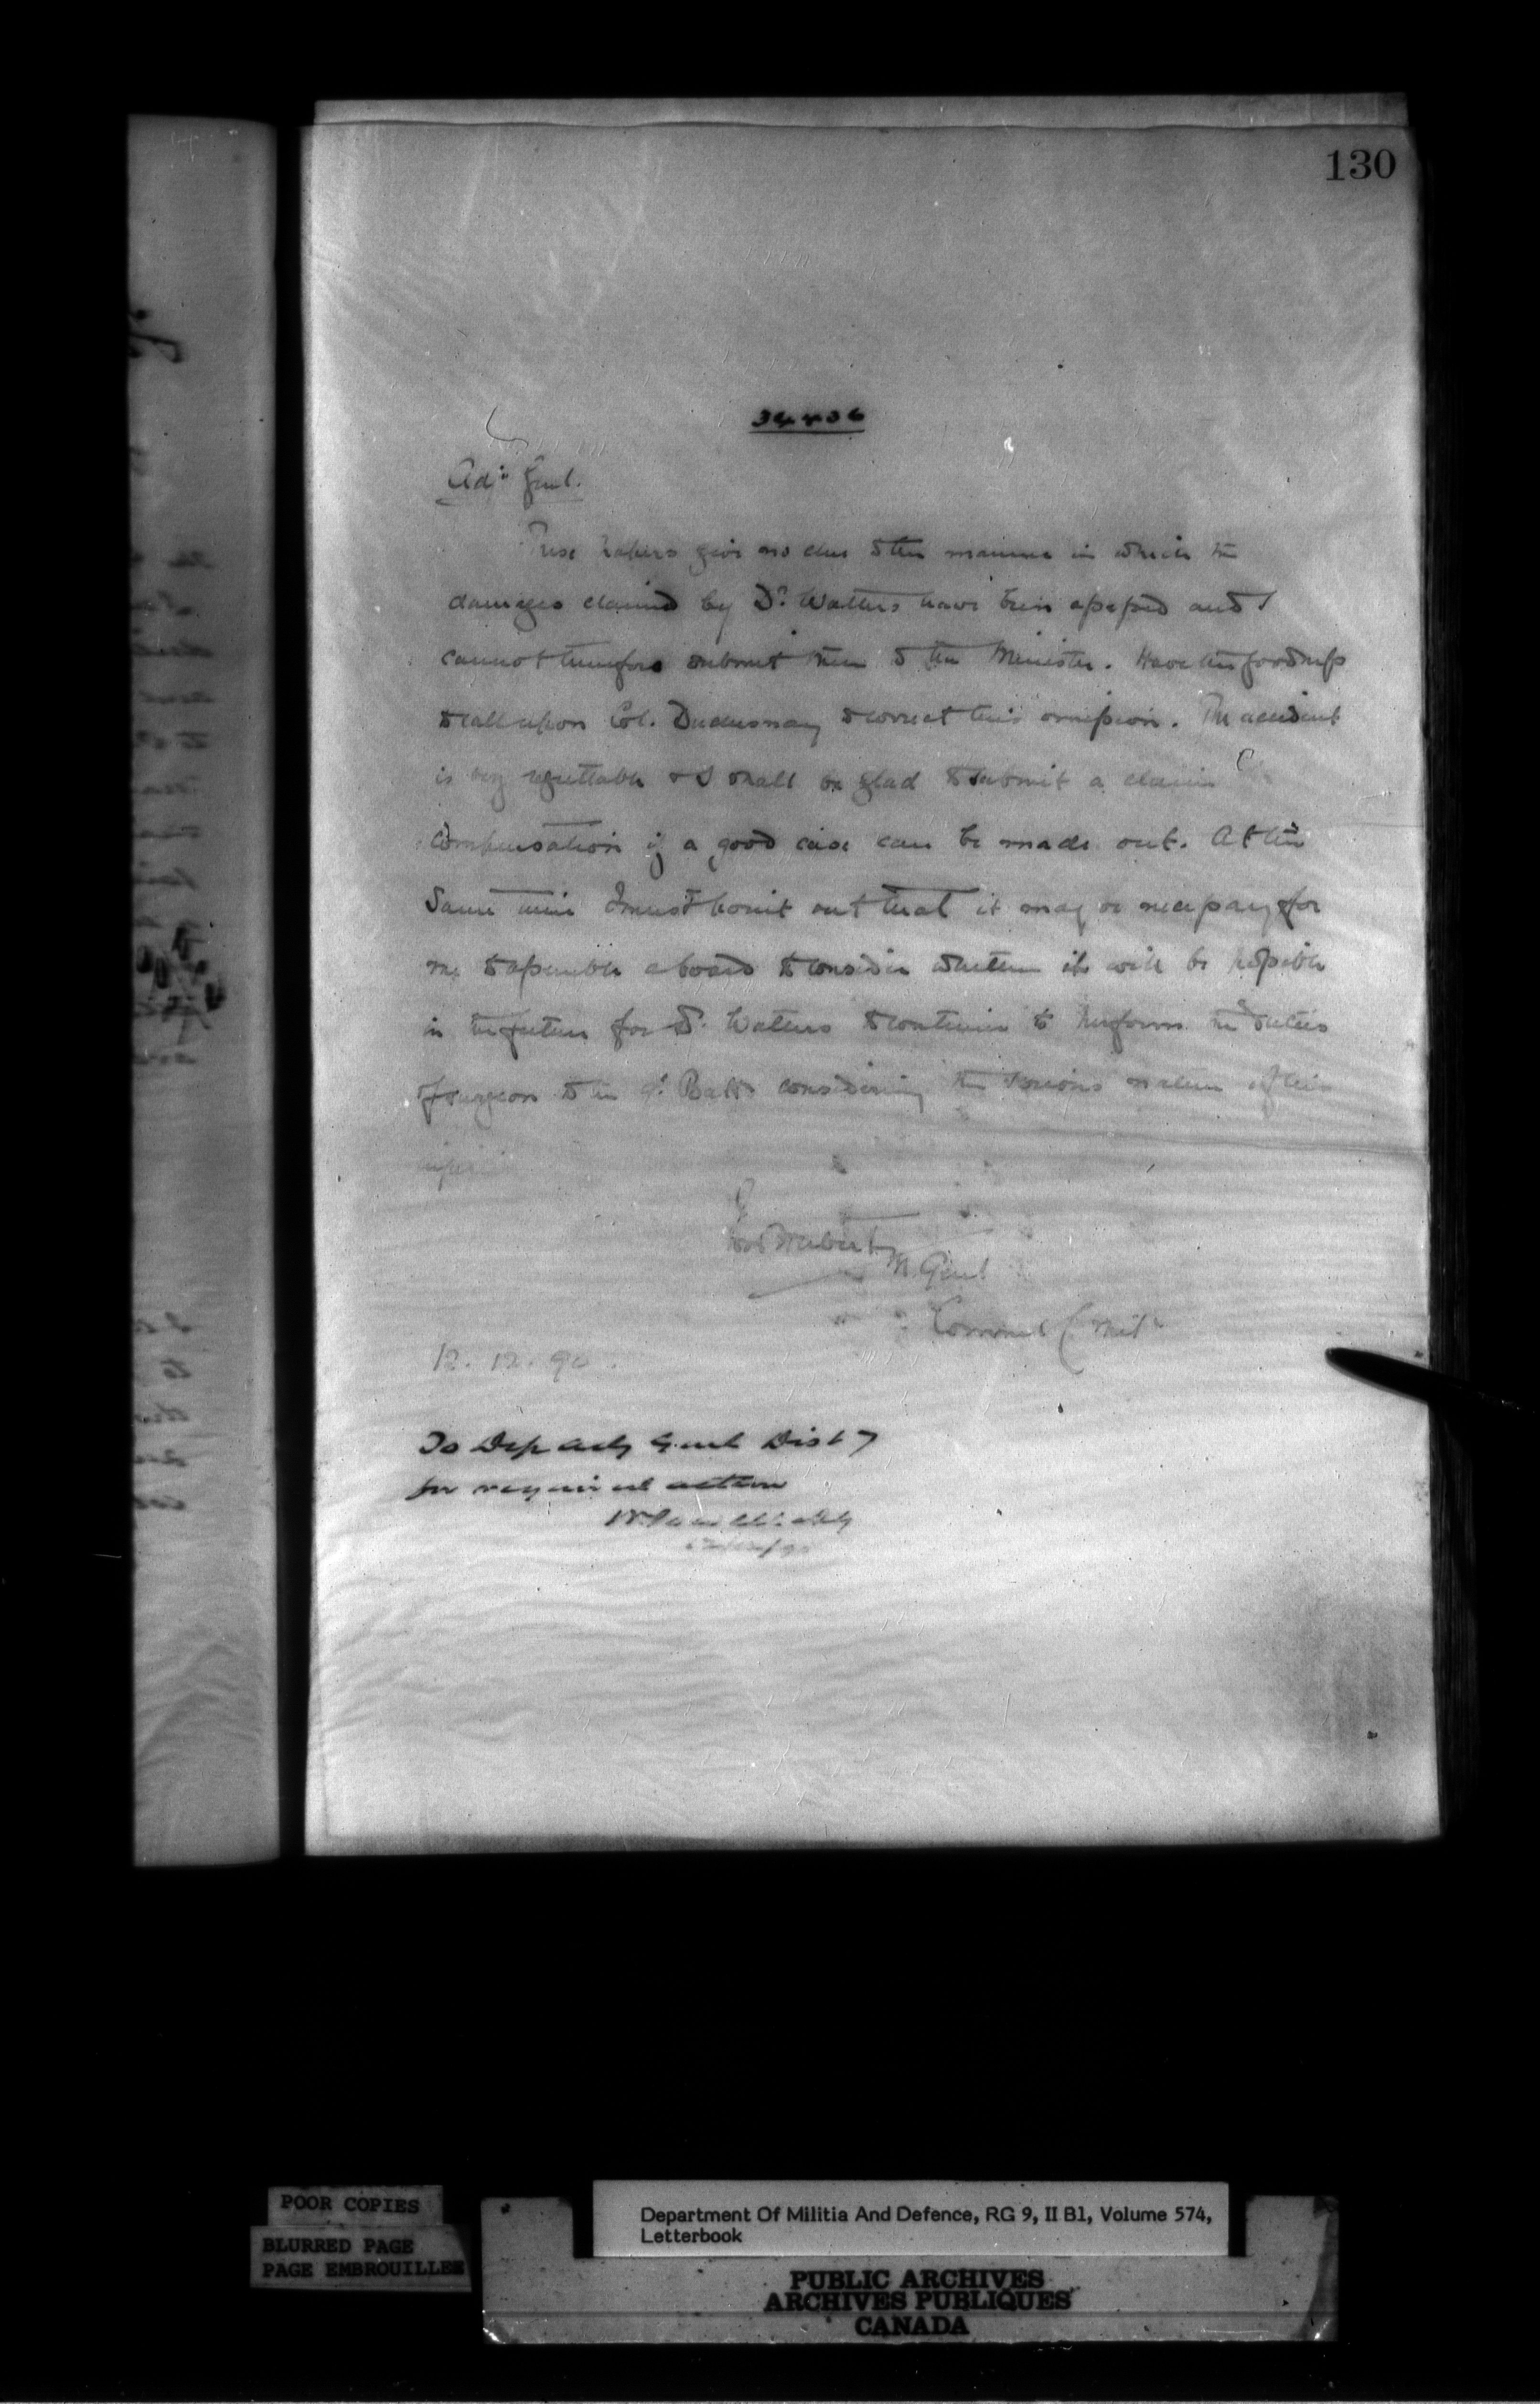 130
Adj: Genl.
These papers give no clue to the manner in which the
damages claimed by Dr. Watters have been assessed and I
cannot therefore submit them to the Minister. Have the goodness
to call upon Col. Duchesnay to correct this omission. The accident
is very regrettable & I shall be glad to submit a claim
Compensation if a good case can be made out. At the
Same time I must point out that it may be necessary for
me to assemble a board to consider whether it will be possible
in the future for Dr. Watters to continue to perform the duties
of surgeon to the 9th Batt. considering the serious nature of his
M. Genl
Commd Mila
12. 12. 90.
To Dep Adj Genl Dist 7
for required action
POOR COPIES
BLURRED PAGE
PAGE EMBROUILLEE
Department Of Militia And Defence, RG 9, II B1, Volume 574,
Letterbook
PUBLIC ARCHIVES
ARCHIVES PUBLIQUES
CANADA